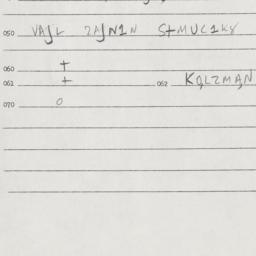 050 VAJL ZAJNIN STMUCIKY
060 +
061 + 062 KALZMAN
070 0